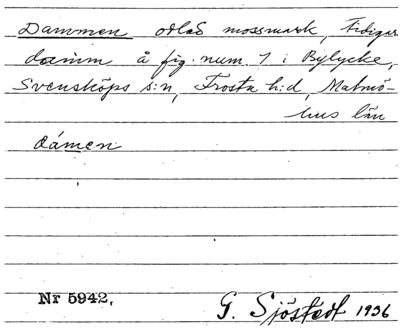 Dammen odlad mossmark, tidigare
damm å fig. num. 1 i Bylycke,
Svensköps s:n, Frosta h:d, Malmö-
hus län
dámen
Nr 5942.
G. Sjöstedt 1936